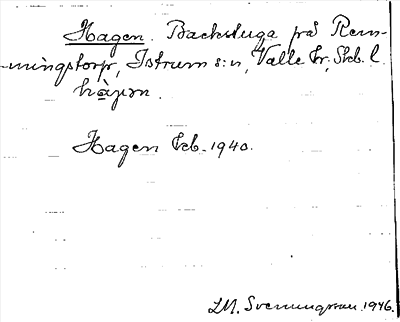 Hagen. Backstuga på Rem-
-mingstorp, Istrum s:n, Valle hr, Skb. l.
hàgən.
Hagen Ekb. 1940.
LM. Svenungsson 1946.